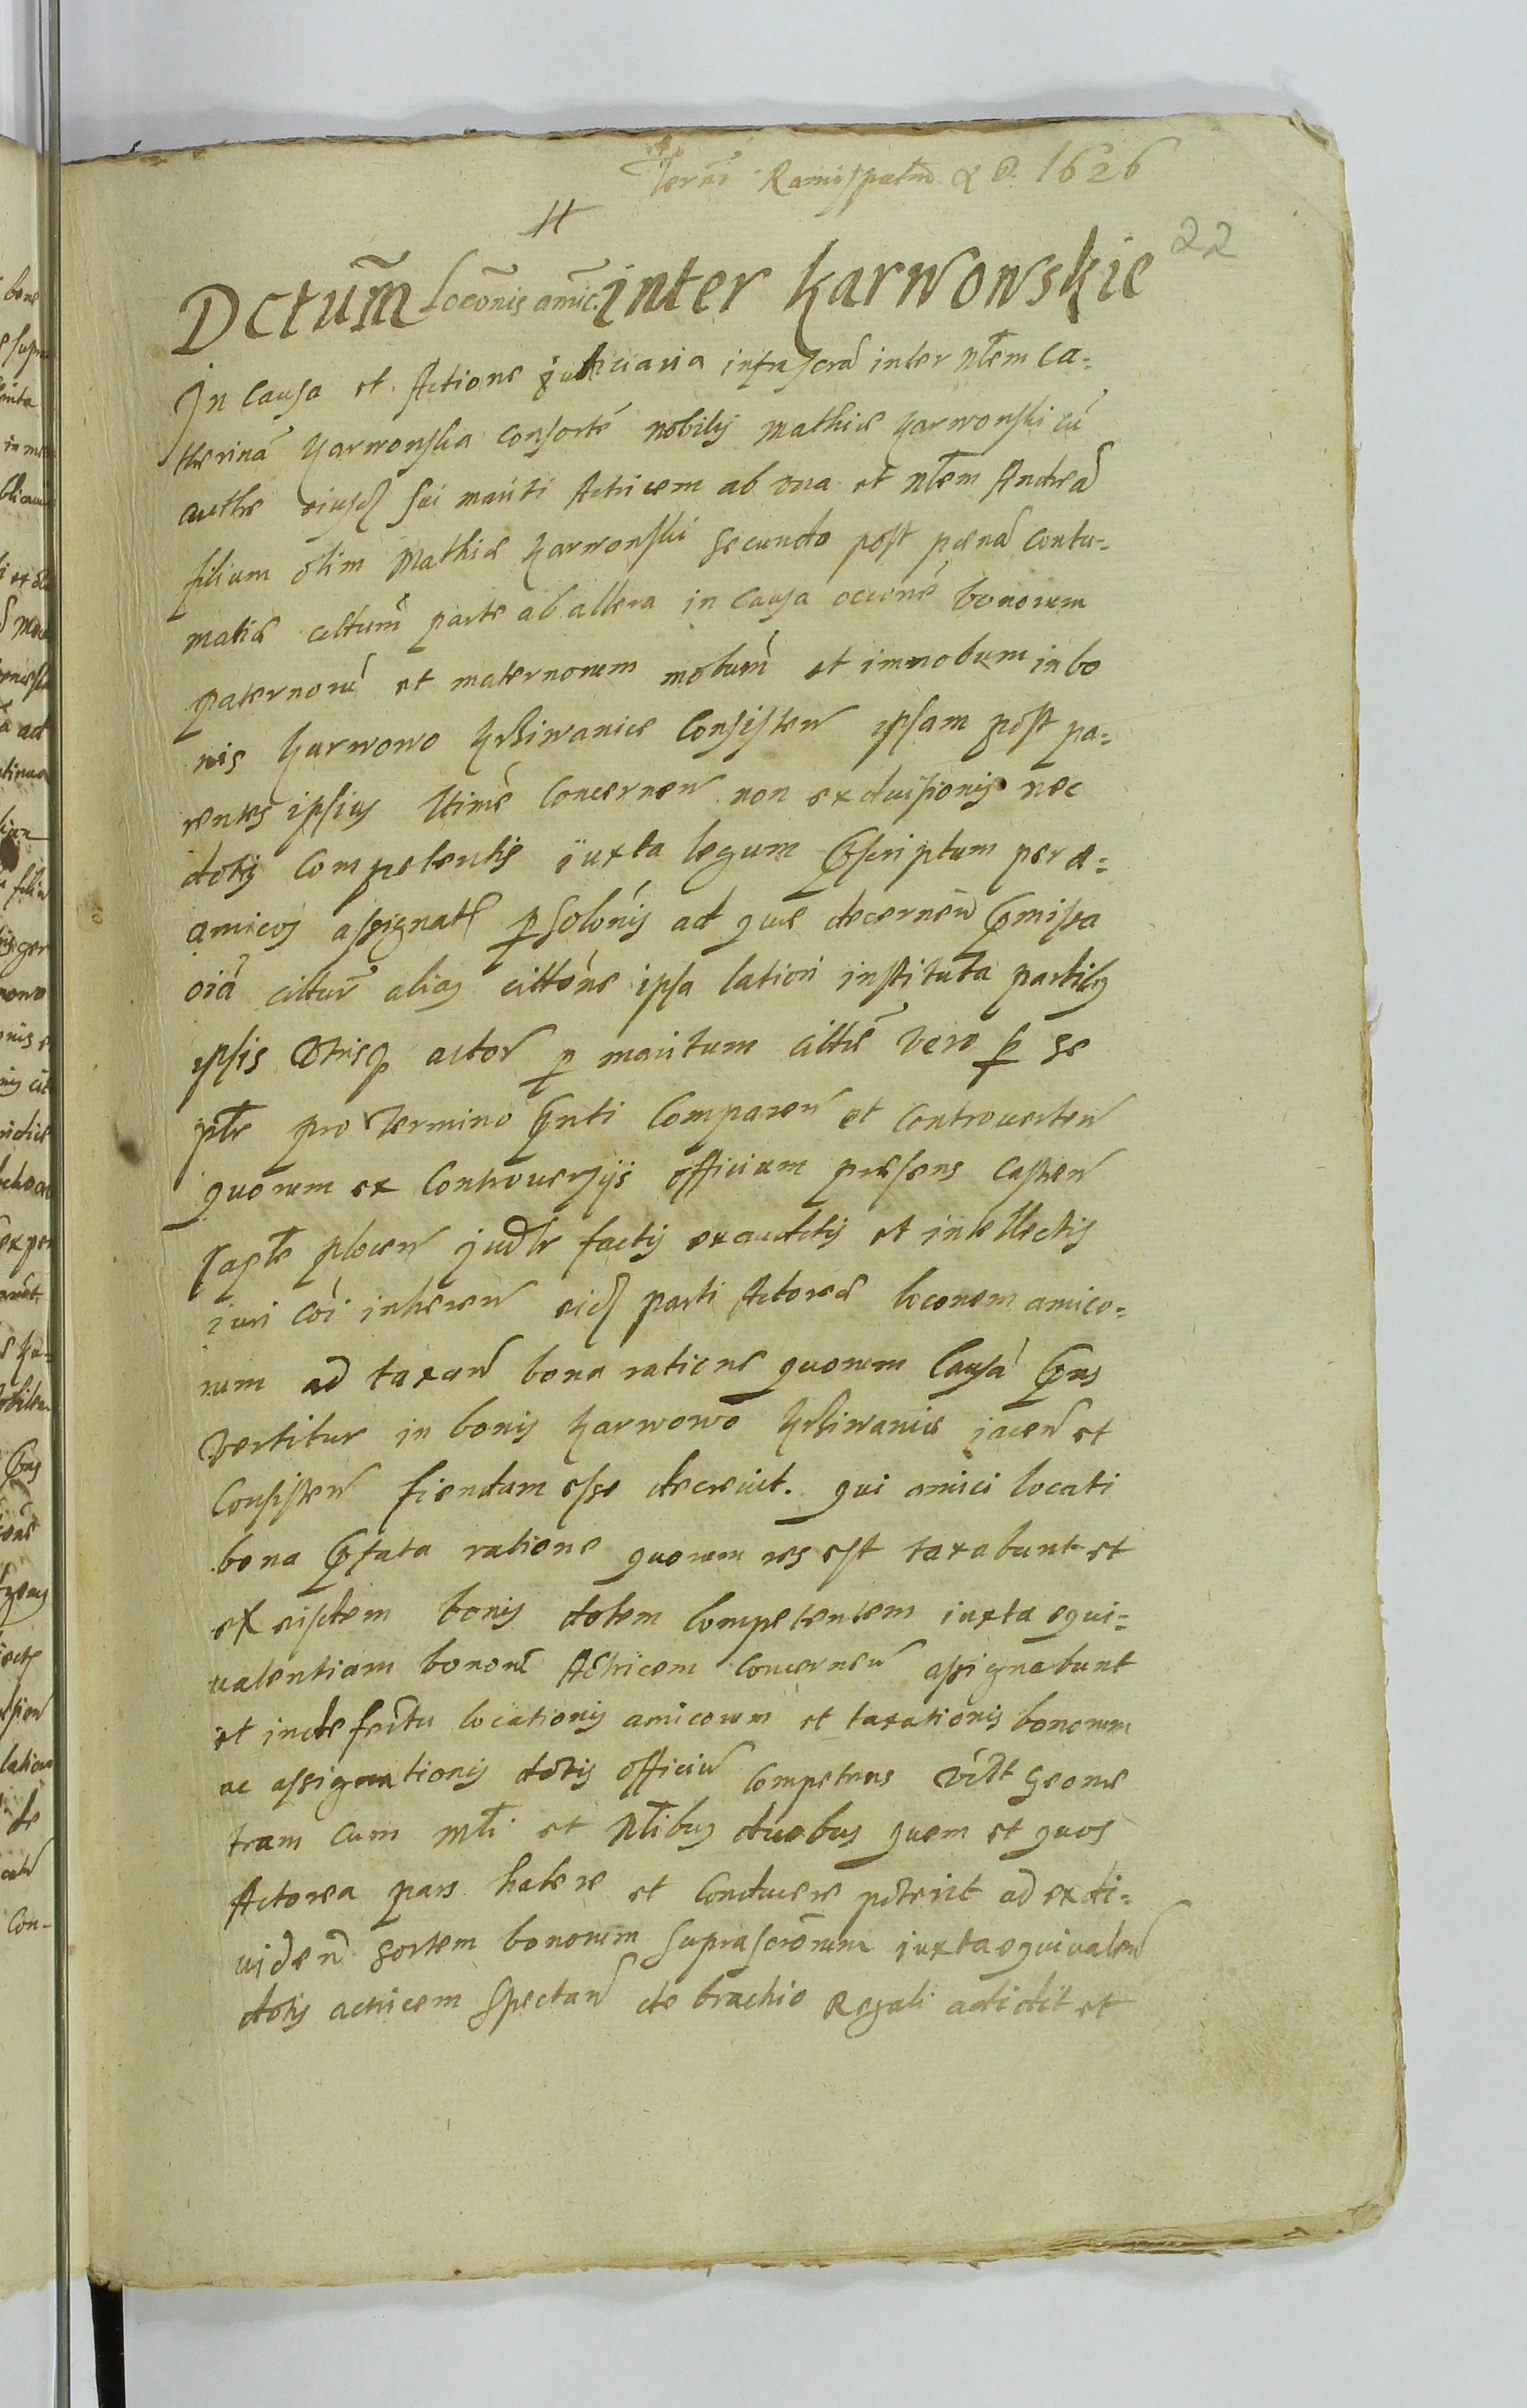 Termi Ramispalmo A D. 1626
H
22
Dctum̃ Locõnis amic. inter Karwowskie
In Causa et Actione judiciaria infrascrã inter Nlem Ca=
therinã Karwowska consortẽ nobilis Mathiæ Karwowski cũ
authe eiusd sui mariti Actricem ab vna et Nlem Andreã
filium olim Mathiæ Karwowski secundo post pænã contu=
matiæ citatum parte ab altera in causa occone bonorum
paternorũ et maternorum mobiliũ et immobilium in bo
nis Karwowo Krziwanice Consisten ipsam post pa=
rentes ipsius ltime concernen non exdiuisionis nec
dotis competentis iuxta legum præscriptum per a=
amicos assignatæ p solonis ad quæ decernen præmissa
oiã citatur alias cittone ipsa latiori instituta partibus
ipsis vtrisq actor p maritum cittũ vero p se
pltr pro Termino pnti Comparen et Controuerten
quorum ex Controuersijs officium præsens Castren
Caple plocen judlr factis exauditis et intellectis
iuri cõi inheren eid parti Actoreæ locõnem amico=
rum ad taxan bona ratione quorum causa pns
vertitur in bonis Karwowo Krziwanice jacen et
Consisten fiendam esse decreuit. qui amici locati
bona præfata ratione quorum res est taxabunt et
ex eisdem bonis dotem competentem iuxta equi=
ualentiam bonorũ Actricem concernen assignabunt
et in defectu locationis amicorum et taxationis bonorum
ac assignationis dotis officiũ competens vidlt Geome
tram cum Mli et Nlibus duobus quem et quos
Actorea pars habere et conducere poterit ad exdi=
uiden sortem bonorum suprascrorum iuxta equiualen
dotis actricem spectan de brachio Regali addidit et